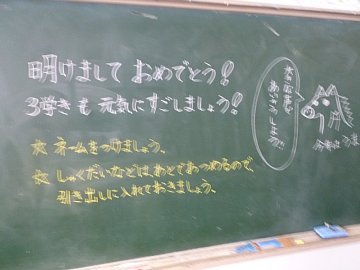 明けまして おめでとう!
3学きも 元気にすごしましょう!
☆ ネームをつけましょう、
☆ しゅくだいなどは、あとであつめるので、
引き出しに入れておきましょう、
大きな声で
あいさつしよう!!
今年は うま